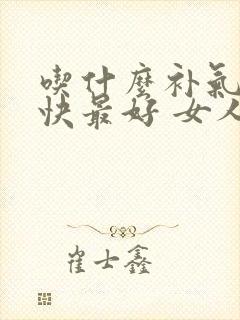 喫什麼补氣
快最好 女人
崔士鑫